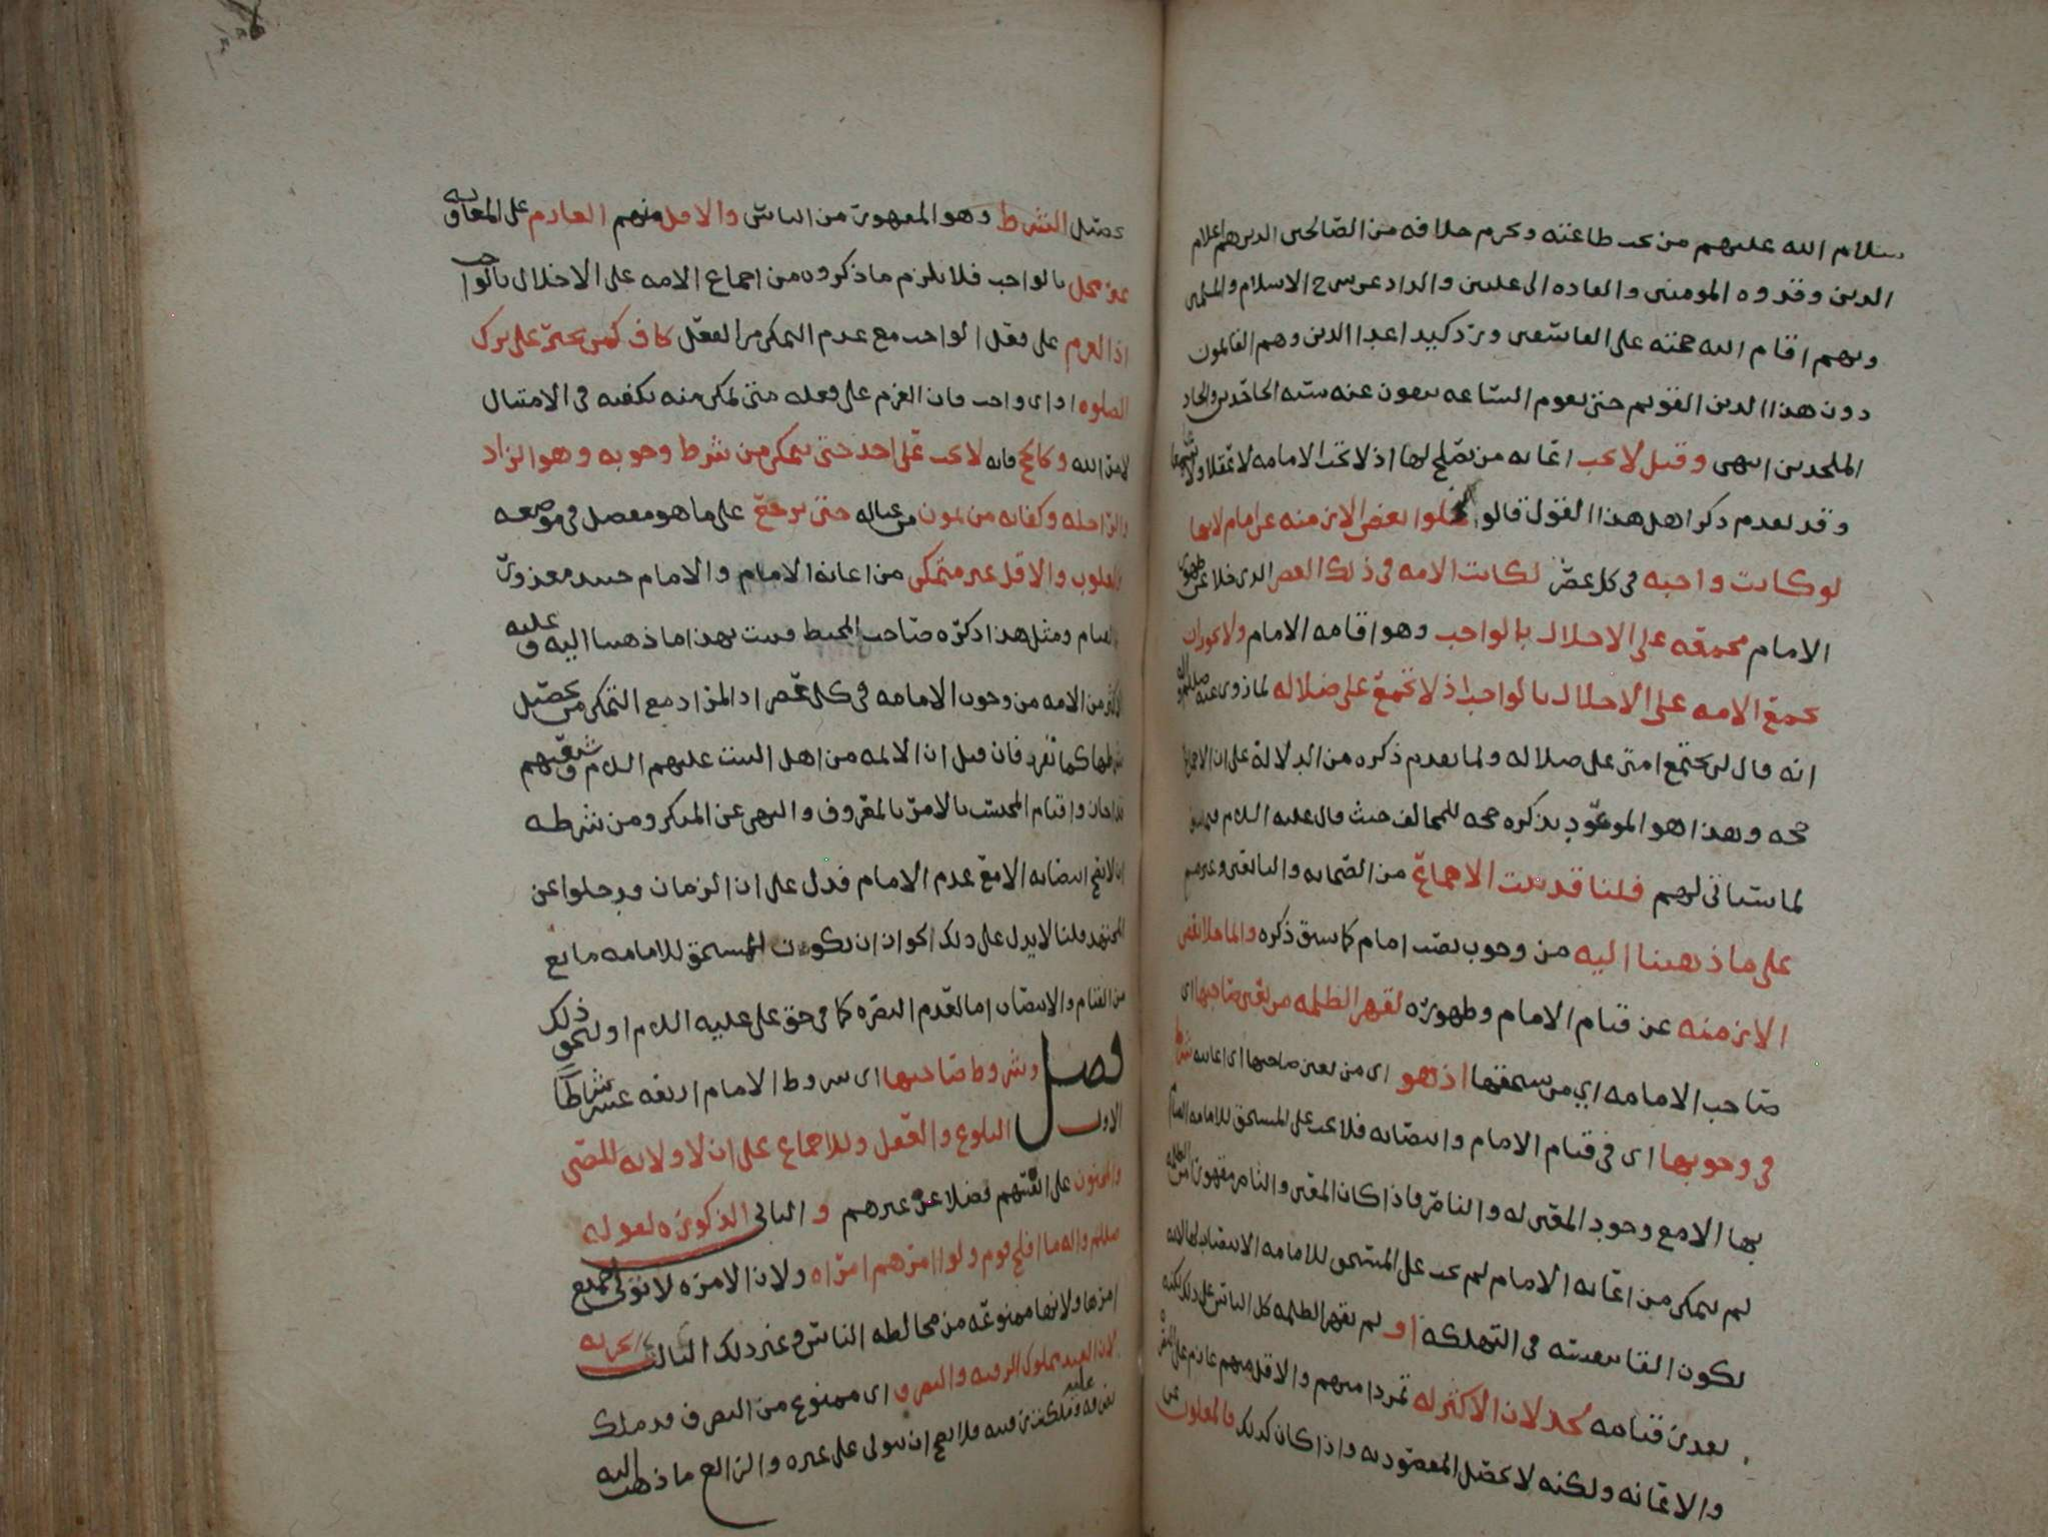 سلام الله عليهم من يجب طاعته ويحرم خلافه من الصالحين الذين هم اعلام
الدين وقدوه المومنين والقاده الى عليين والذاد عن سرح الاسلام والمسلمين
وبهم اقام الله حجته على الفاسقين ورد كيد اعدا الدين وهم القايمون
دون هذا الدين القويم حتى تقوم الساعه ينفون عنه شبه الجاحدين والحاد
الملحدين انتهى وقيل لا يجب اعانه من يصلح لها اذ لا تجب الامامه لا عقلا ولا
وقد تقدم ذكر اهل هذا القول قالوا لخلوا بعض الازمنه عن امام لانها
لو كانت واجبه في كل عصر لكانت الامه في ذلك العصر الذي خلا عن ظهور
الامام مجمعه على الاخلال بالواجب وهو اقامه الامام ولا يجوز ان
تجمع الامه على الاخلال بالواجب اذ لا تجمع على ضلاله لما روي عنه
انه قال لن تجتمع امتي على ضلاله ولما تقدم ذكره من الدلاله على ان الاجماع
حجه وهذا هو الموعود بذكره حجه للمخالف حيث قال عليه السلام فيما سبق
لما سياتي لهم قلنا قد ثبت الاجماع من الصحابه والتابعين وغيرهم
على ما ذهبنا اليه من وجوب نصب امام كما سبق ذكره وانما خلا بعض
الازمنه عن قيام الامام وظهوره لقهر الظلمه من يعين صاحبها اي
صاحب الامامه اي من يستحقها اذ هو اي من يعين صاحبها اي اعانته شرط
في وجوبها اي في قيام الامام وانتصابه فلا يجب على المستحق للامامه القيام
بها الا مع وجود المعين له والناصر فاذا كان المعين والناصر مقهورا من الظلمه
لم يتمكن من اعانه الامام لم يجب على المستحق للامامه الانتصاب لها لانه
يكون القا بنفسه في التهلكه او لم تقهر الظلمه كل الناس على ذلك لكنه
تعذر قيامه لخذلان الاكثر له تمردا منهم والاقل منهم عازم على النصره
والاعانه ولكنه لا يحصل المقصود به واذا كان كذلك فالمغلوب عن
تحصيل الشرط وهو المقهور من الناس والاقل منهم العازم على المعاونه
غير مخل بالواجب فلا يلزم ما ذكروه من اجماع الامه على الاخلال بالواجب
اذ العزم على فعل الواجب مع عدم التمكن من الفعل كاف كمن يجبر على ترك
الصلوه او اي واجب فان العزم على فعله متى تمكن منه يكفيه في الامتثال
لامر الله وكالحج فانه لا يجب على احد حتى يتمكن من شرط وجوبه وهو الزاد
والراحله وكفايه من يمون من عياله حتى يرجع على ما هو مفصل في موضعه
فالمغلوب والاقل غير متمكن من اعانه الامام والامام حينيذ معذور عن
القيام ومثل هذا ذكره صاحب المحيط فثبت بهذا ما ذهبنا اليه وعليه
الاكثر من الامه من وجوب الامامه في كل عصر اذ المراد مع التمكن من تحصيل
شرطها كما تقرر فان قيل ان الايمه من اهل البيت عليهم السلام وشيعتهم
قد اجازوا قيام المحتسب بالامر بالمعروف والنهي عن المنكر ومن شرطه
ان لا يصح انتصابه الا مع عدم الامام فدل على ان الزمان قد خلوا عن
المجتهد قلنا لا يدل على ذلك لجواز ان يكون للمستحق للامامه مانع
من القيام والانتصاب اما لعدم النصره كما في حق علي عليه السلام او لنحو ذلك
فصل وشروط صاحبها اي شروط الامام اربعه عشر شرطا
الاول البلوغ والعقل وللاجماع على ان لا ولايه للصبي
والمجنون على انفسهم فضلا عن غيرهم و الثاني الذكوره لقوله
صلى الله عليه واله ما افلح قوم ولوا امرهم امراه ولان الامره لا تولى جميع
امرها ولانها ممنوعه من مخالطه الناس وغير ذلك الثالث الحريه
لان العبد مملوك الرقبه والتصرف اي ممنوع من التصرف قد ملك
تصرفه عليه فلا يصح ان يتولى على غيره والرابع ما ذهب اليه